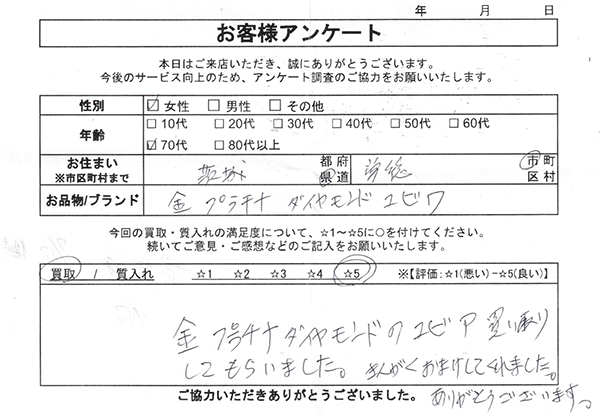 年 月 日
お客様アンケート
本日はご来店いただき、誠にありがとうございます。
今後のサービス向上のため、アンケート調査のご協力をお願いいたします。
性別 ☑女性 □男性 □その他
年齢 □10代 □20代 □30代 □40代 □50代 □60代
☑70代 □80代以上
お住まい ※市区町村まで 茨城 都府県道 常総 市町区村
お品物/ブランド 金 プラチナ ダイヤモンド ユビワ
今回の買取・質入れの満足度について、☆1～☆5に○を付けてください。
続いてご意見・ご感想などのご記入をお願いいたします。
買取 / 質入れ ☆1 ☆2 ☆3 ☆4 ☆5 ※【評価:☆1(悪い)-☆5(良い)】
金 プラチナ ダイヤモンドのユビア 買い取り
してもらいました。 きんがくおまけしてくれました。
ご協力いただきありがとうございました。 ありがとうございます。